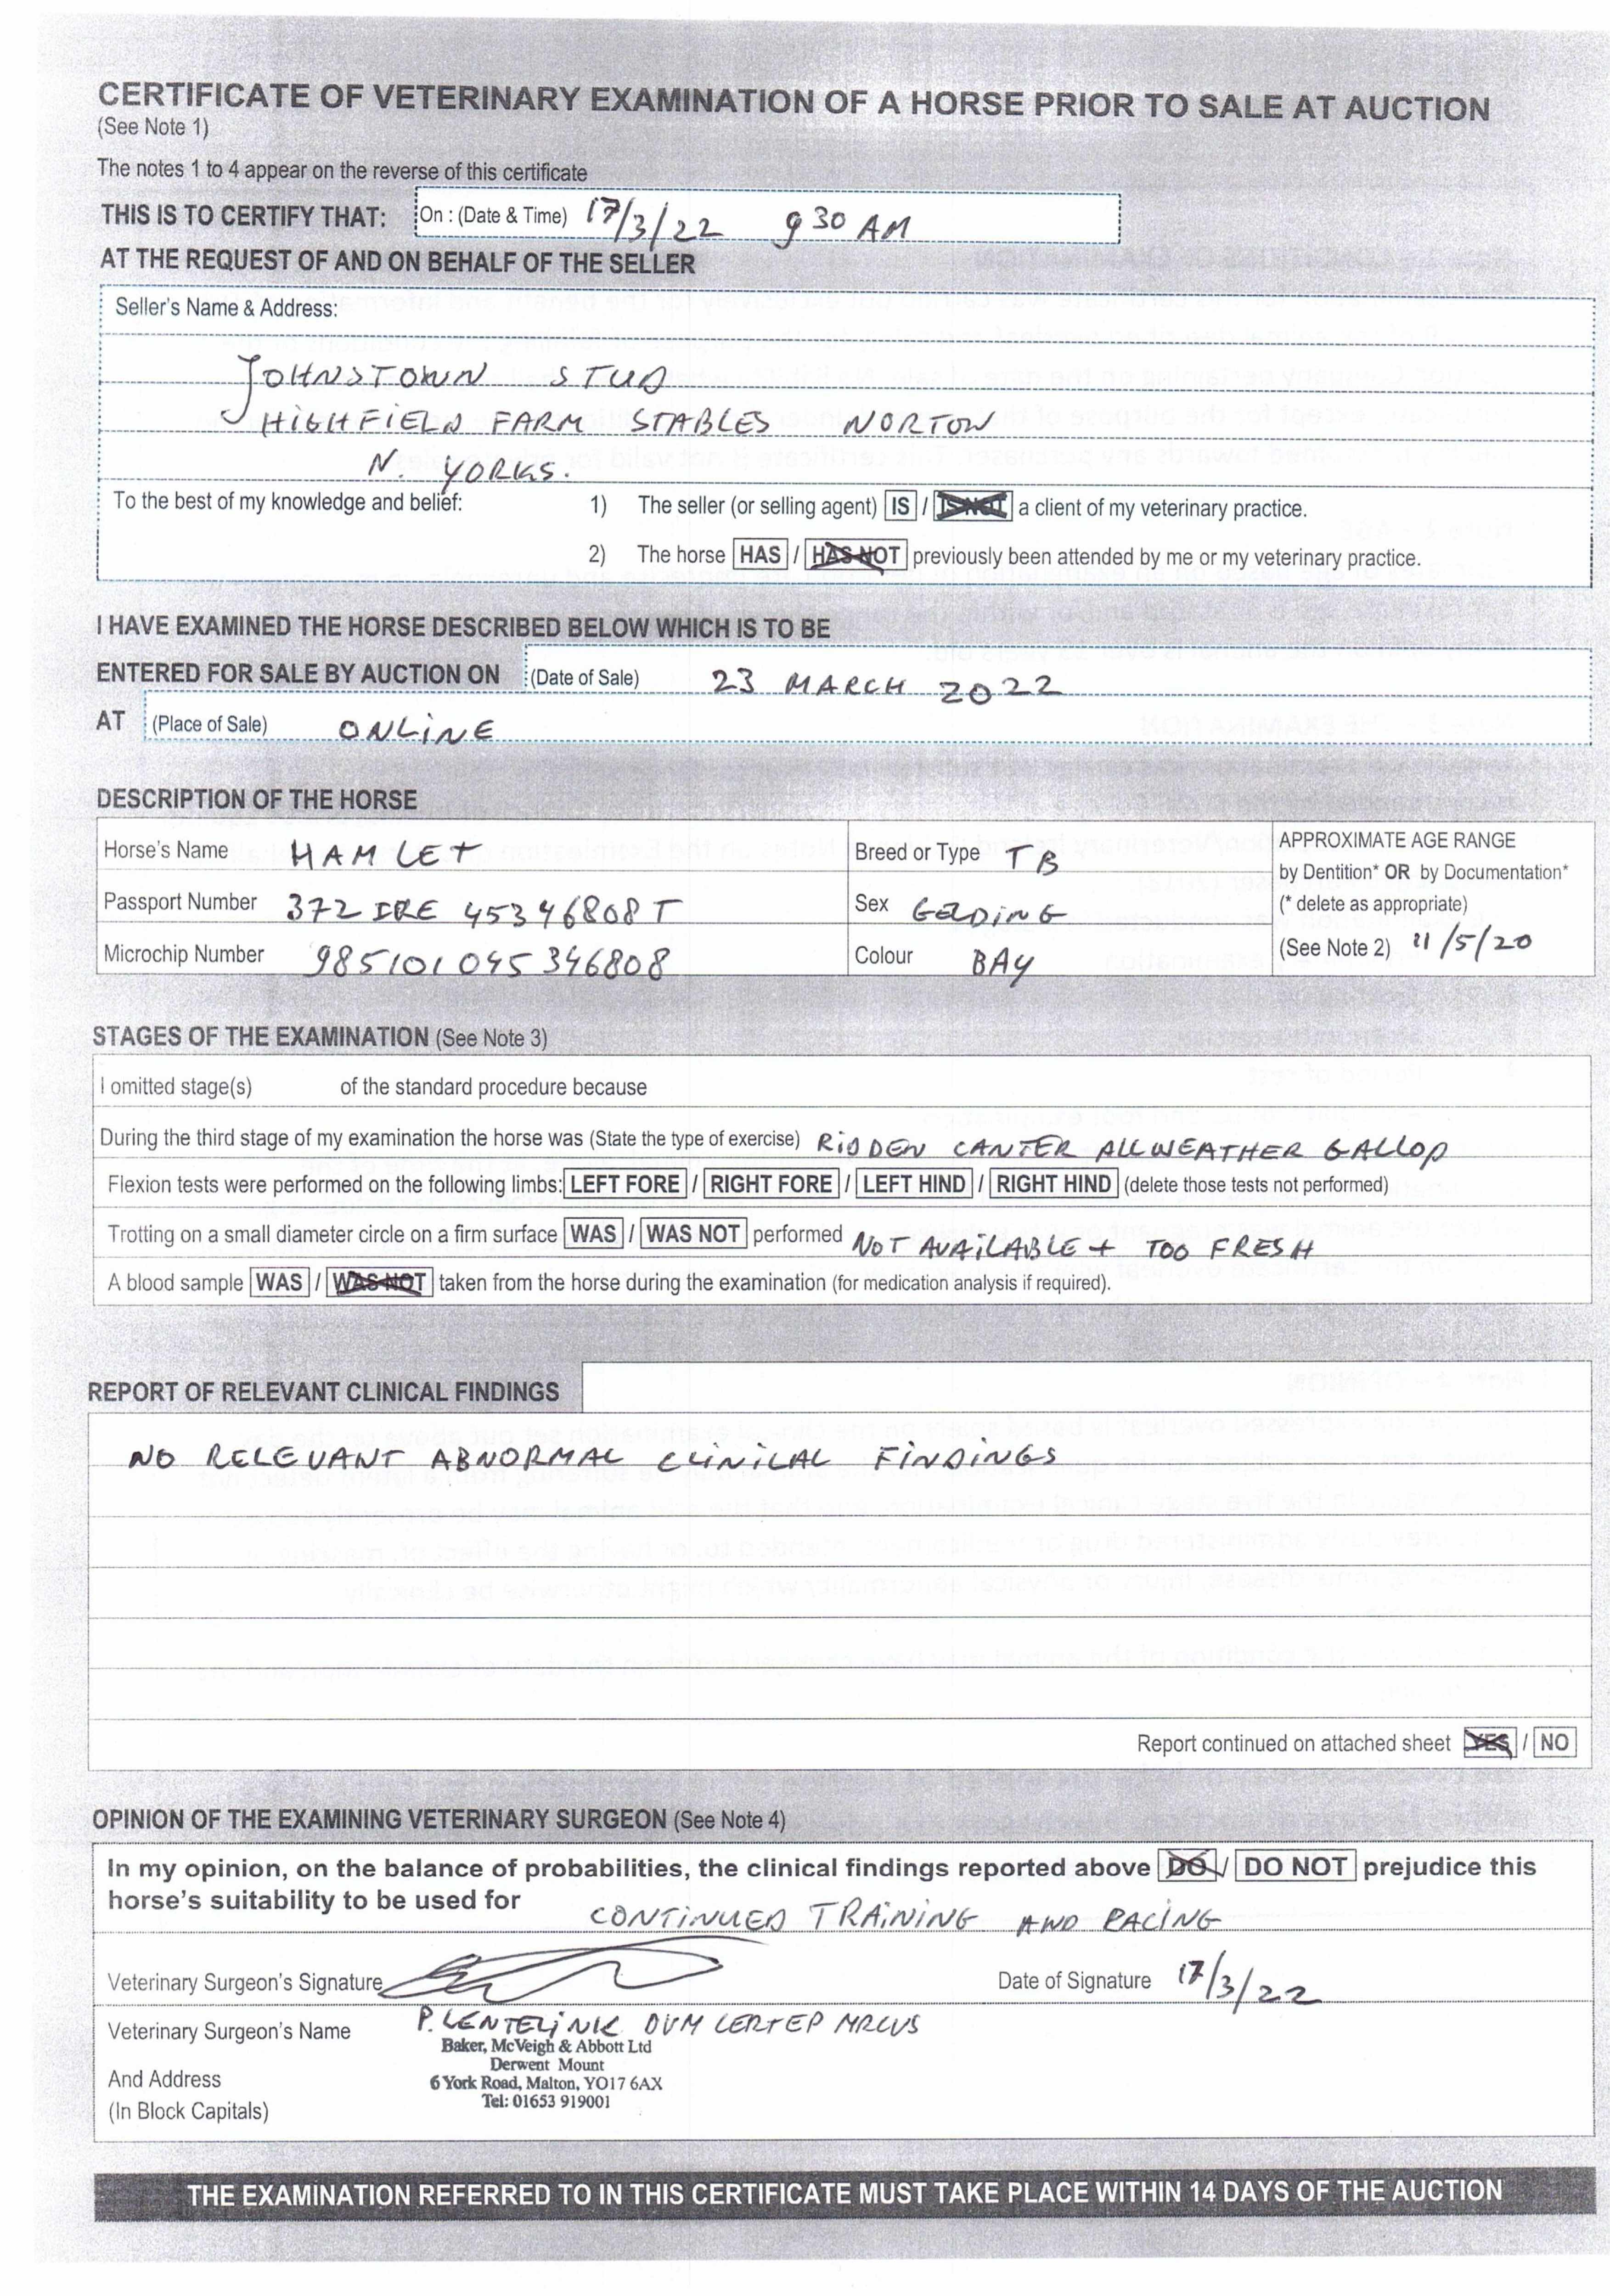 CERTIFICATE OF VETERINARY EXAMINATION OF A HORSE PRIOR TO SALE AT AUCTION
(See Note 1)
The notes 1 to 4 appear on the reverse of this certificate
THIS IS TO CERTIFY THAT: On : (Date & Time) 17/3/22 9 30 AM
AT THE REQUEST OF AND ON BEHALF OF THE SELLER
Seller's Name & Address:
JOHNSTOWN STUD
HIGHFIELD FARM STABLES NORTON
N. YORKS.
To the best of my knowledge and belief: 1) The seller (or selling agent) IS / IS NOT a client of my veterinary practice.
2) The horse HAS / HAS NOT previously been attended by me or my veterinary practice.
I HAVE EXAMINED THE HORSE DESCRIBED BELOW WHICH IS TO BE
ENTERED FOR SALE BY AUCTION ON (Date of Sale) 23 MARCH 2022
AT (Place of Sale) ONLINE
DESCRIPTION OF THE HORSE
Horse's Name HAMLET Breed or Type TB APPROXIMATE AGE RANGE
by Dentition* OR by Documentation*
Passport Number 372 IRE 45346808T Sex GELDING (* delete as appropriate)
Microchip Number 985101045346808 Colour BAY (See Note 2) 11/5/20
STAGES OF THE EXAMINATION (See Note 3)
I omitted stage(s) of the standard procedure because
During the third stage of my examination the horse was (State the type of exercise) RIDDEN CANTER ALLWEATHER GALLOP
Flexion tests were performed on the following limbs: LEFT FORE / RIGHT FORE / LEFT HIND / RIGHT HIND (delete those tests not performed)
Trotting on a small diameter circle on a firm surface WAS / WAS NOT performed NOT AVAILABLE + TOO FRESH
A blood sample WAS / WAS NOT taken from the horse during the examination (for medication analysis if required).
REPORT OF RELEVANT CLINICAL FINDINGS
NO RELEVANT ABNORMAL CLINICAL FINDINGS
Report continued on attached sheet YES / NO
OPINION OF THE EXAMINING VETERINARY SURGEON (See Note 4)
In my opinion, on the balance of probabilities, the clinical findings reported above DO / DO NOT prejudice this
horse's suitability to be used for CONTINUED TRAINING AND RACING
Veterinary Surgeon's Signature Date of Signature 17/3/22
Veterinary Surgeon's Name P. LENTELINK DVM CERTEP MRCVS
Baker, McVeigh & Abbott Ltd
Derwent Mount
And Address 6 York Road, Malton, YO17 6AX
Tel: 01653 919001
(In Block Capitals)
THE EXAMINATION REFERRED TO IN THIS CERTIFICATE MUST TAKE PLACE WITHIN 14 DAYS OF THE AUCTION